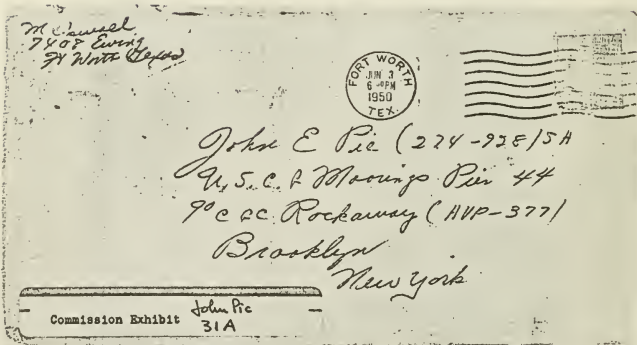 M Oswald
7408 Ewing
Ft Worth Texas
FORT WORTH
JUN 3
6 PM
1950
TEX.
John E Pic (274-928) SA
U.S.C.G Moorings Pier 44
% C GC Rockaway (AVP-377)
Brooklyn
New York
Commission Exhibit
John Pic
31A